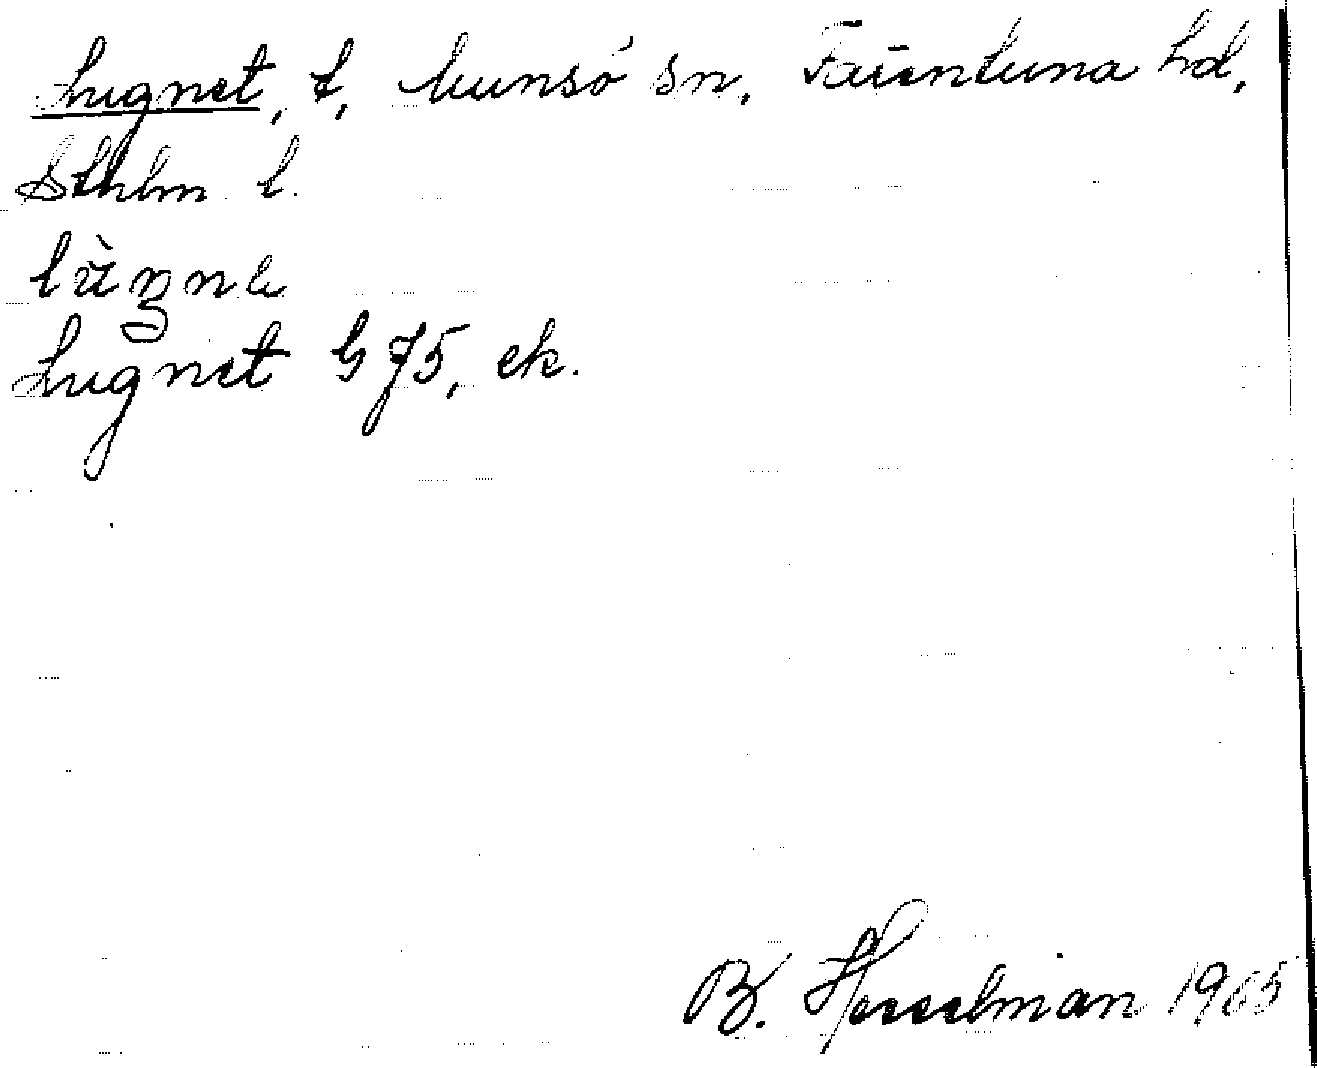 Lugnet, t, Munsö sn, Färentuna hd,
Sthlm l.
Lugnet G 75, ek.
B. Hesselman 1965